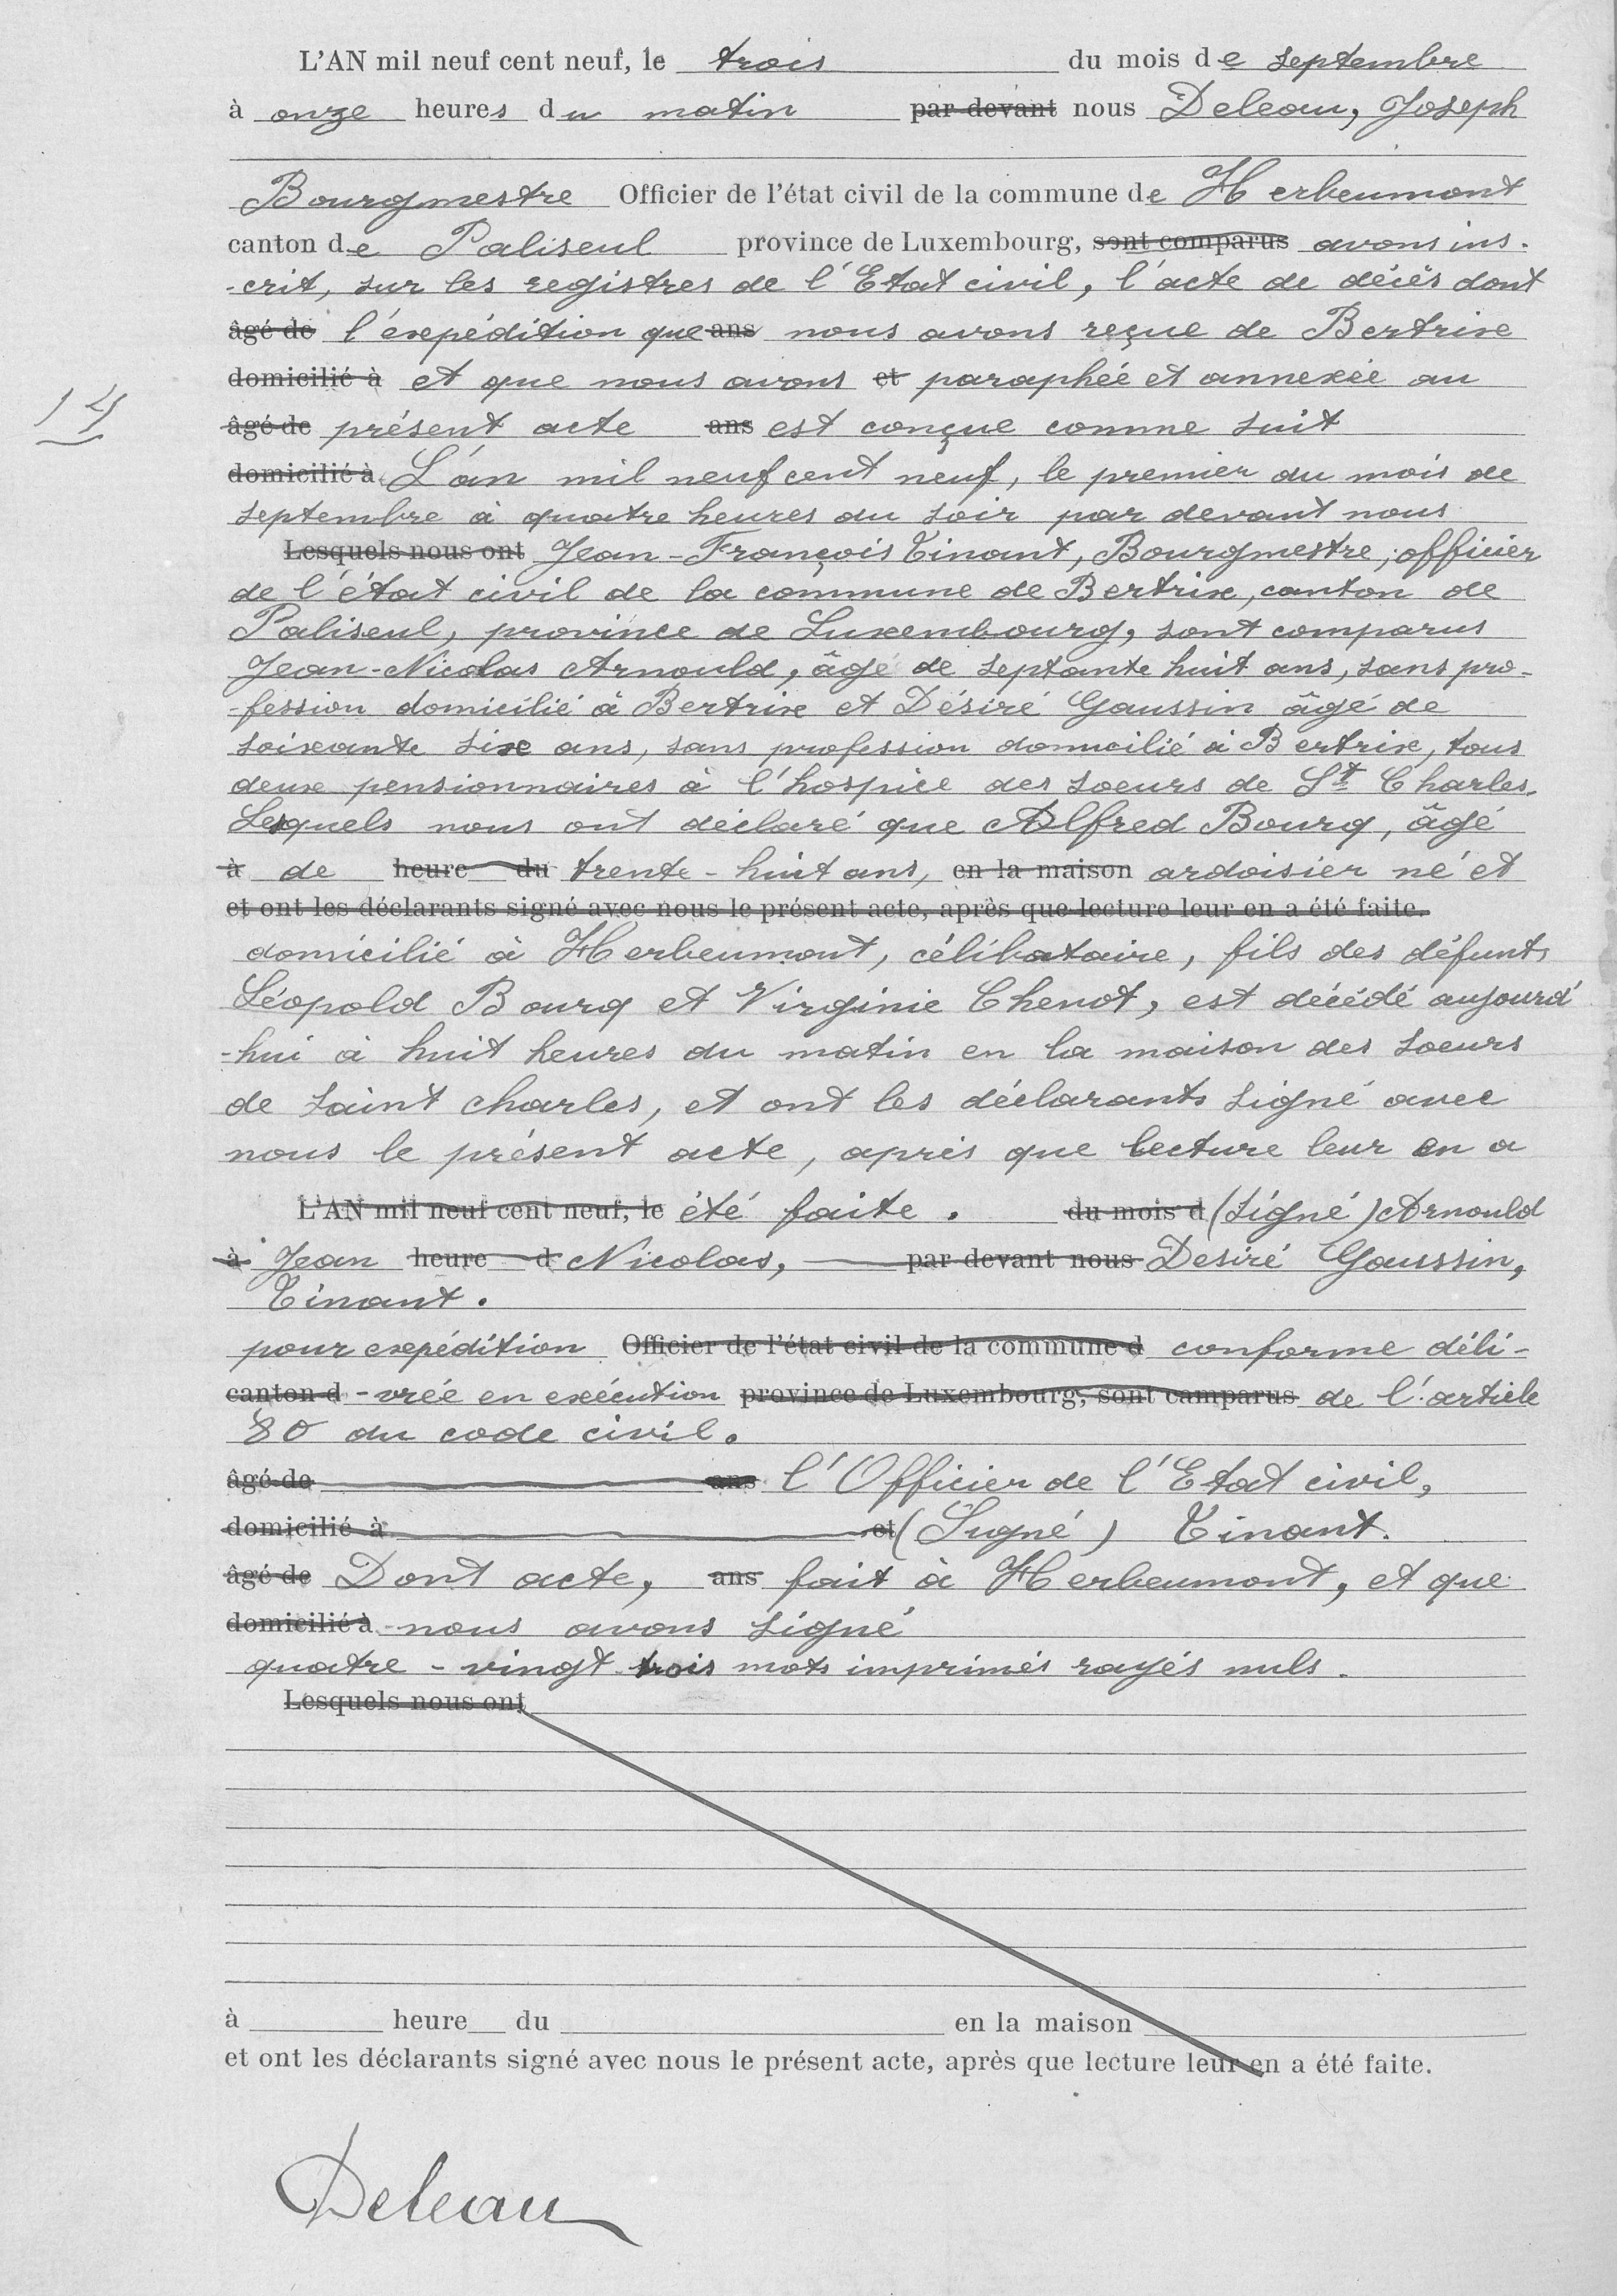 L'AN mil neuf cent neuf, le trois du mois de septembre
à onze heures du matin par devant nous Deleau, Joseph
Bourgmestre Officier de l'état civil de la commune de Herbeumont
canton de Paliseul province de Luxembourg, sont comparus avons ins-
-crit, sur les registres de l'Etat civil, l'acte de décès dont
âgé de l'expédition que ans nous avons reçue de Bertrix
domicilié à et que nous avons et paraphée et annexée au
14
âgé de présent acte ans est conçue comme suit
domicilié à L'an mil neuf cent neuf, le premier du mois de
septembre à quatre heures du soir par devant nous
Lesquels nous ont Jean-François Tinant, Bourgmestre, officier
de l'état civil de la commune de Bertrix, canton de
Paliseul, province de Luxembourg, sont comparus
Jean-Nicolas Arnould, âgé de septante huit ans, sans pro-
-fession domicilié à Bertrix et Désiré Gaussin âgé de
soixante six ans, sans profession domicilié à Bertrix, tous
deux pensionnaires à l'hospice des soeurs de St Charles.
Lesquels nous ont déclaré que Alfred Bourg, âgé
à de heure du trente-huit ans, en la maison ardoisier né et
et ont les déclarants signé avec nous le présent acte, après que lecture leur en a été faite.
domicilié à Herbeumont, célibataire, fils des défunts
Léopold Bourg et Virginie Chenot, est décédé aujourd'
-hui à huit heures du matin en la maison des soeurs
de saint charles, et ont les déclarants signé avec
nous le présent acte, après que lecture leur en a
L'AN mil neuf cent neuf, le été faite. du mois d (signé) Arnould
à Jean heure d Nicolas, par devant nous Desiré Gaussin,
Tinant.
pour expédition Officier de l'état civil de la commune d conforme déli-
canton d -vrée en exécution province de Luxembourg, sont camparus de l'article
80 du code civil.
âgé de ans l'Officier de l'Etat civil,
domicilié à et (Signé) Tinant.
âgé de Dont acte, ans fait à Herbeumont, et que
domicilié à nous avons signé
quatre-vingt trois mots imprimés rayés nuls.
Lesquels nous ont
à heure du en la maison
et ont les déclarants signé avec nous le présent acte, après que lecture leur en a été faite.
Deleau